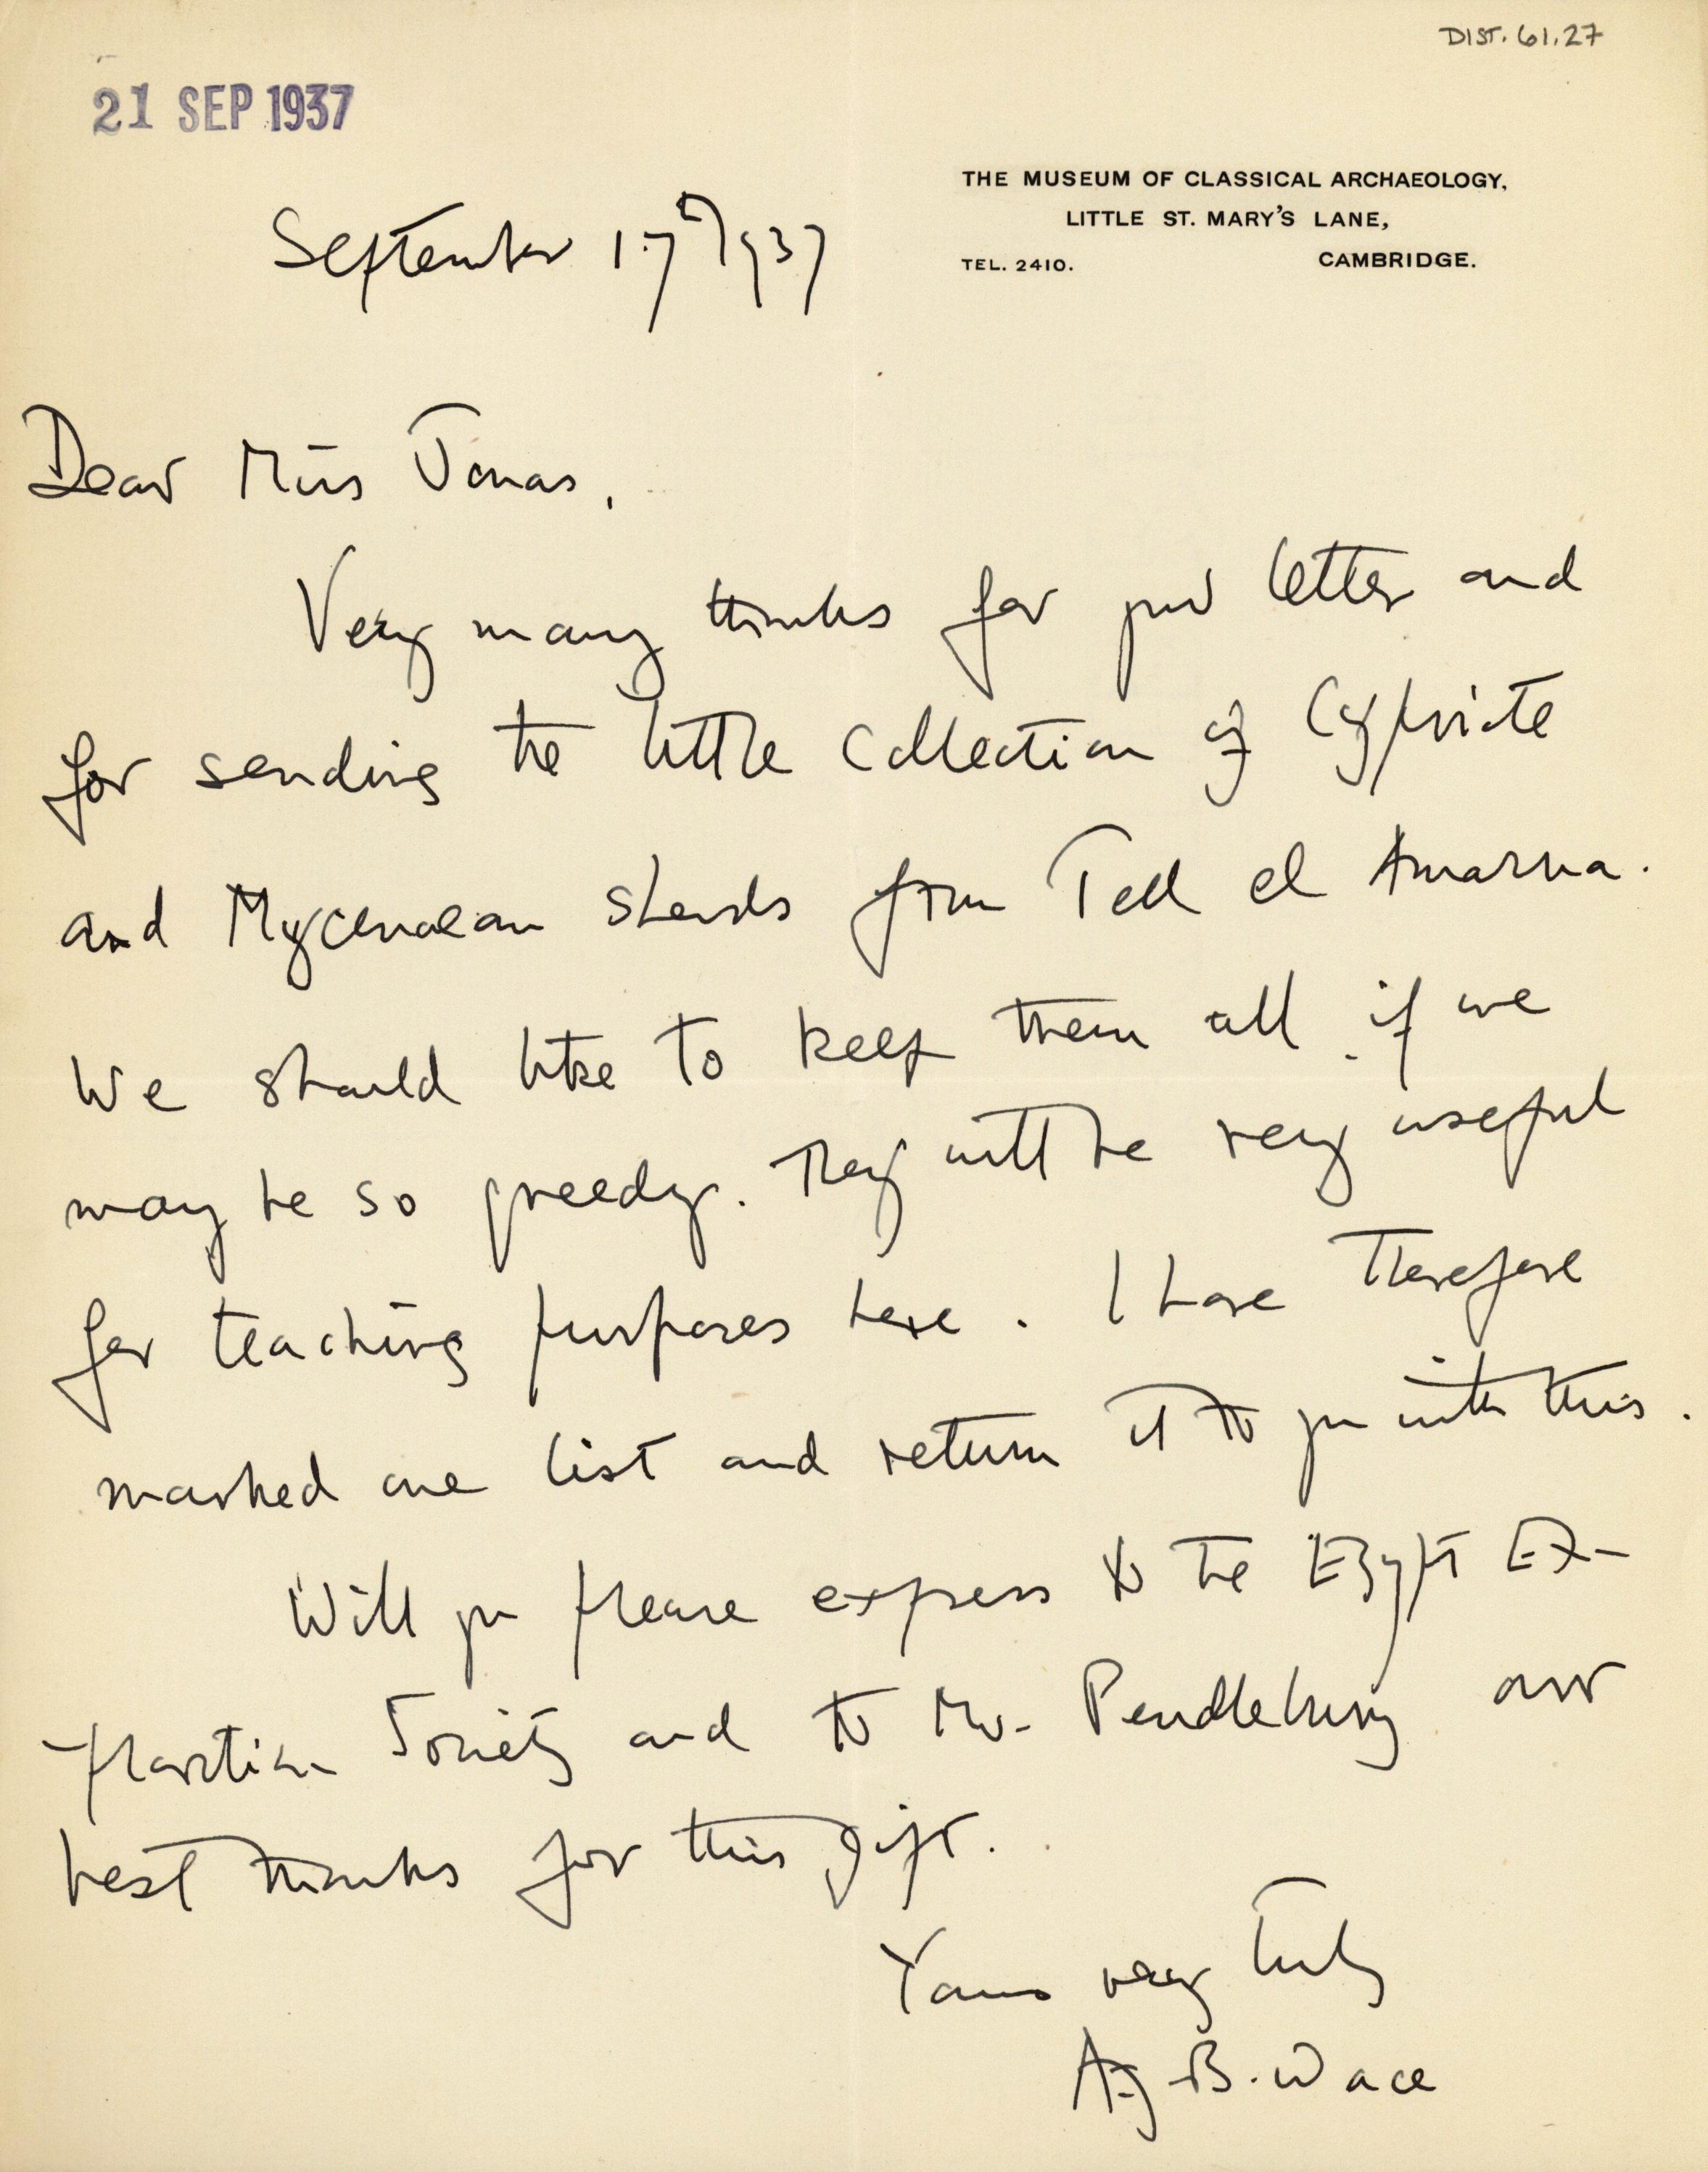 DIST. 61.27
21 SEP 1937
THE MUSEUM OF CLASSICAL ARCHAEOLOGY,
LITTLE ST. MARY'S LANE,
TEL. 2410. CAMBRIDGE.
September 17th 1937
Dear Miss Jonas,
Very many thanks for your letter and
for sending the little collection of Cypriote
and Mycenaean sherds from Tell el Amarna.
We should like to keep them all, if we
may be so greedy. They will be very useful
for teaching purposes here. I have therefore
marked one list and return it to you with this.
Will you please express to the Egypt Ex-
-ploration Society and to Mr. Pendlebury our
best thanks for this gift.
Yours very truly
A.J.B. Wace